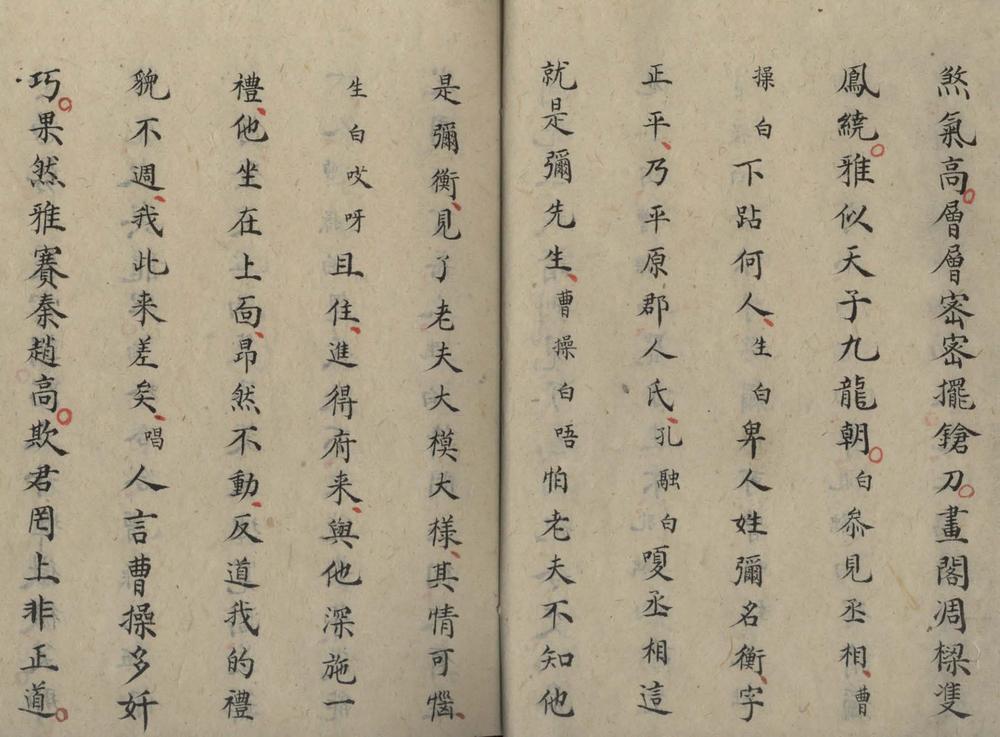 煞氣高。層層密密擺鎗刀。畫閣凋樑隻
鳳繞。雅似天子九龍朝。白叅見丞相、曹
操白下跕何人、生白卑人姓彌名衡、字
正平、乃平原郡人氏、孔融白嗄丞相這
就是彌先生、曹操白唔怕老夫不知他
是彌衡、見了老夫大模大樣、其情可惱、
生白哎呀且住、進得府来、與他深施一
禮、他坐在上面、昂然不動、反道我的禮
貌不週、我此来差矣、唱人言曹操多奸
巧。果然雅賽秦趙高。欺君罔上非正道。